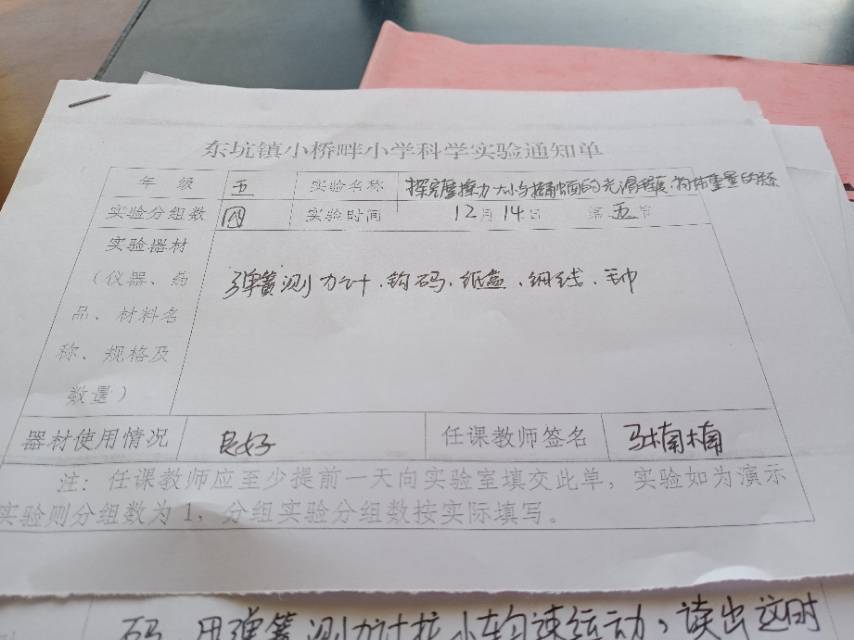 东坑镇小桥畔小学科学实验通知单
年 级 五 实验名称 探究摩擦力大小与接触面的光滑程度、物体重量的关系
实验分组数 四 实验时间 12月14日 第五节
实验器材
（仪器、药
品、材料名
称、规格及
数量）
弹簧测力计、钩码、纸盒、细线、毛巾
器材使用情况 良好 任课教师签名 马楠楠
注：任课教师应至少提前一天向实验室填交此单，实验如为演示
实验则分组数为1，分组实验分组数按实际填写。
码，用弹簧测力计拉小车匀速运动，读出这时